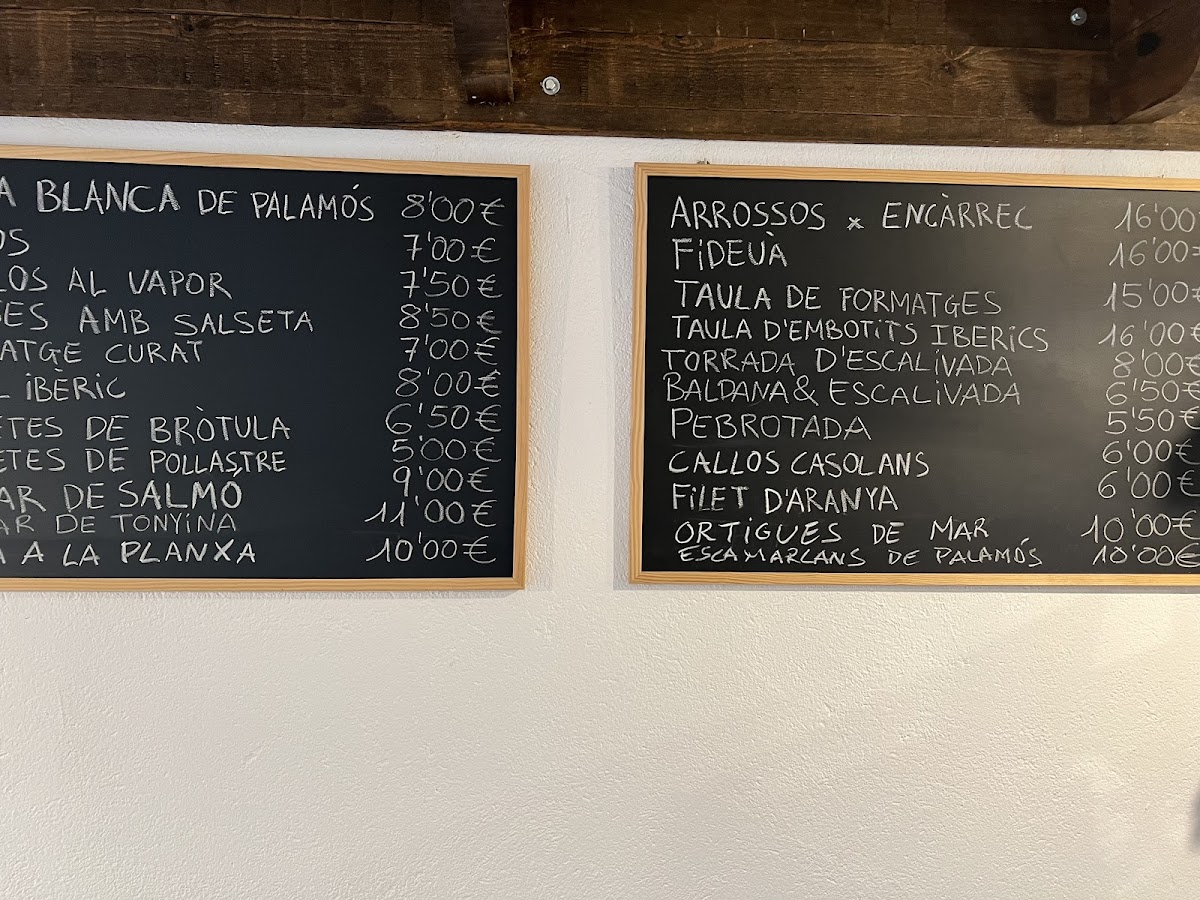 BLANCA DE PALAMÓS 8'00€
7'00€
AL VAPOR 7'50€
AMB SALSETA 8'50€
CURAT 7'00€
IBÈRIC 8'00€
DE BRÒTULA 6'50€
DE POLLASTRE 5'00€
DE SALMÓ 9'00€
DE TONYINA 11'00€
A LA PLANXA 10'00€
ARROSSOS x ENCÀRREC 16'00
FIDEUÀ 16'00€
TAULA DE FORMATGES 15'00€
TAULA D'EMBOTITS IBERICS 16'00€
TORRADA D'ESCALIVADA 8'00€
BALDANA & ESCALIVADA 6'50€
PEBROTADA 5'50€
CALLOS CASOLANS 6'00€
FILET D'ARANYA 6'00€
ORTIGUES DE MAR 10'00€
ESCAMARLANS DE PALAMÓS 10'00€